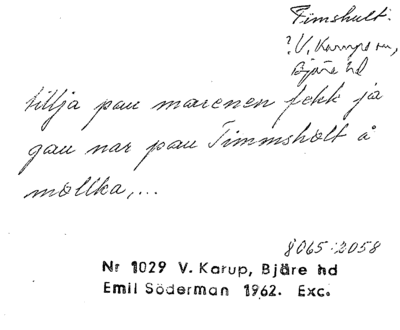 Timshult.
? V. Karups sn,
Bjäre hd
tillja pau marenen fekk ja
gau nar pau Timmsholt å
mollka,...
8065:2058
Nr 1029 V. Karup, Bjäre hd
Emil Söderman 1962. Exc.